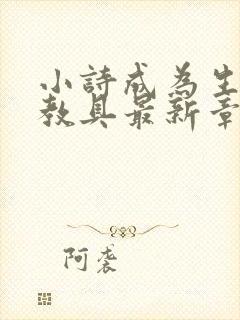 小詩成為生
教具最新章
阿袭